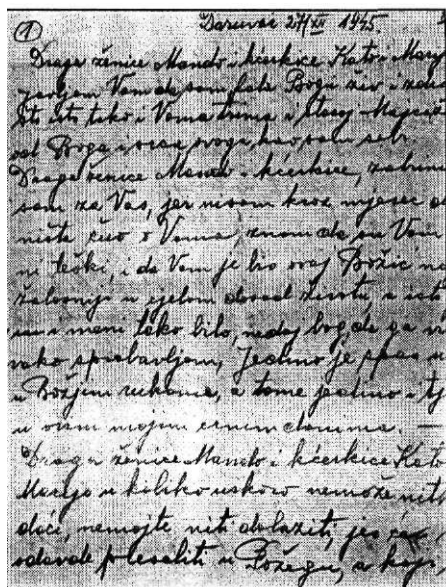 ①
Daruvar 27/XII 1945.
Draga ženice Mando i kćerkice Kato i Mary
javljam Vam da sam fala Bogu živ i zdr
što isto tako i Vama trima i staroj Majci
od Boga i srca svoga, kao sam sebi.
Draga ženice Mando i kćerkice, zabrin
sam za Vas, jer nisam kroz mjesec d
ništa čuo o Vama, znam da su Vam
ni teški, i da Vam je bio ovaj Božić na
žalosniji u cijelom životu, a ist
i meni tako bilo, nedaj bog da ga
vako sprobavljam, Jedino je spas
u Božjim rukama, a tome jedino i
u ovim mojim crnim danima. —
Draga ženice Mando i kćerkice Kat
Marijo u koliko uskoro nemože nit
doći, nemojte niti dolaziti, jer će
odavde preseliti u Požegu, a kaj